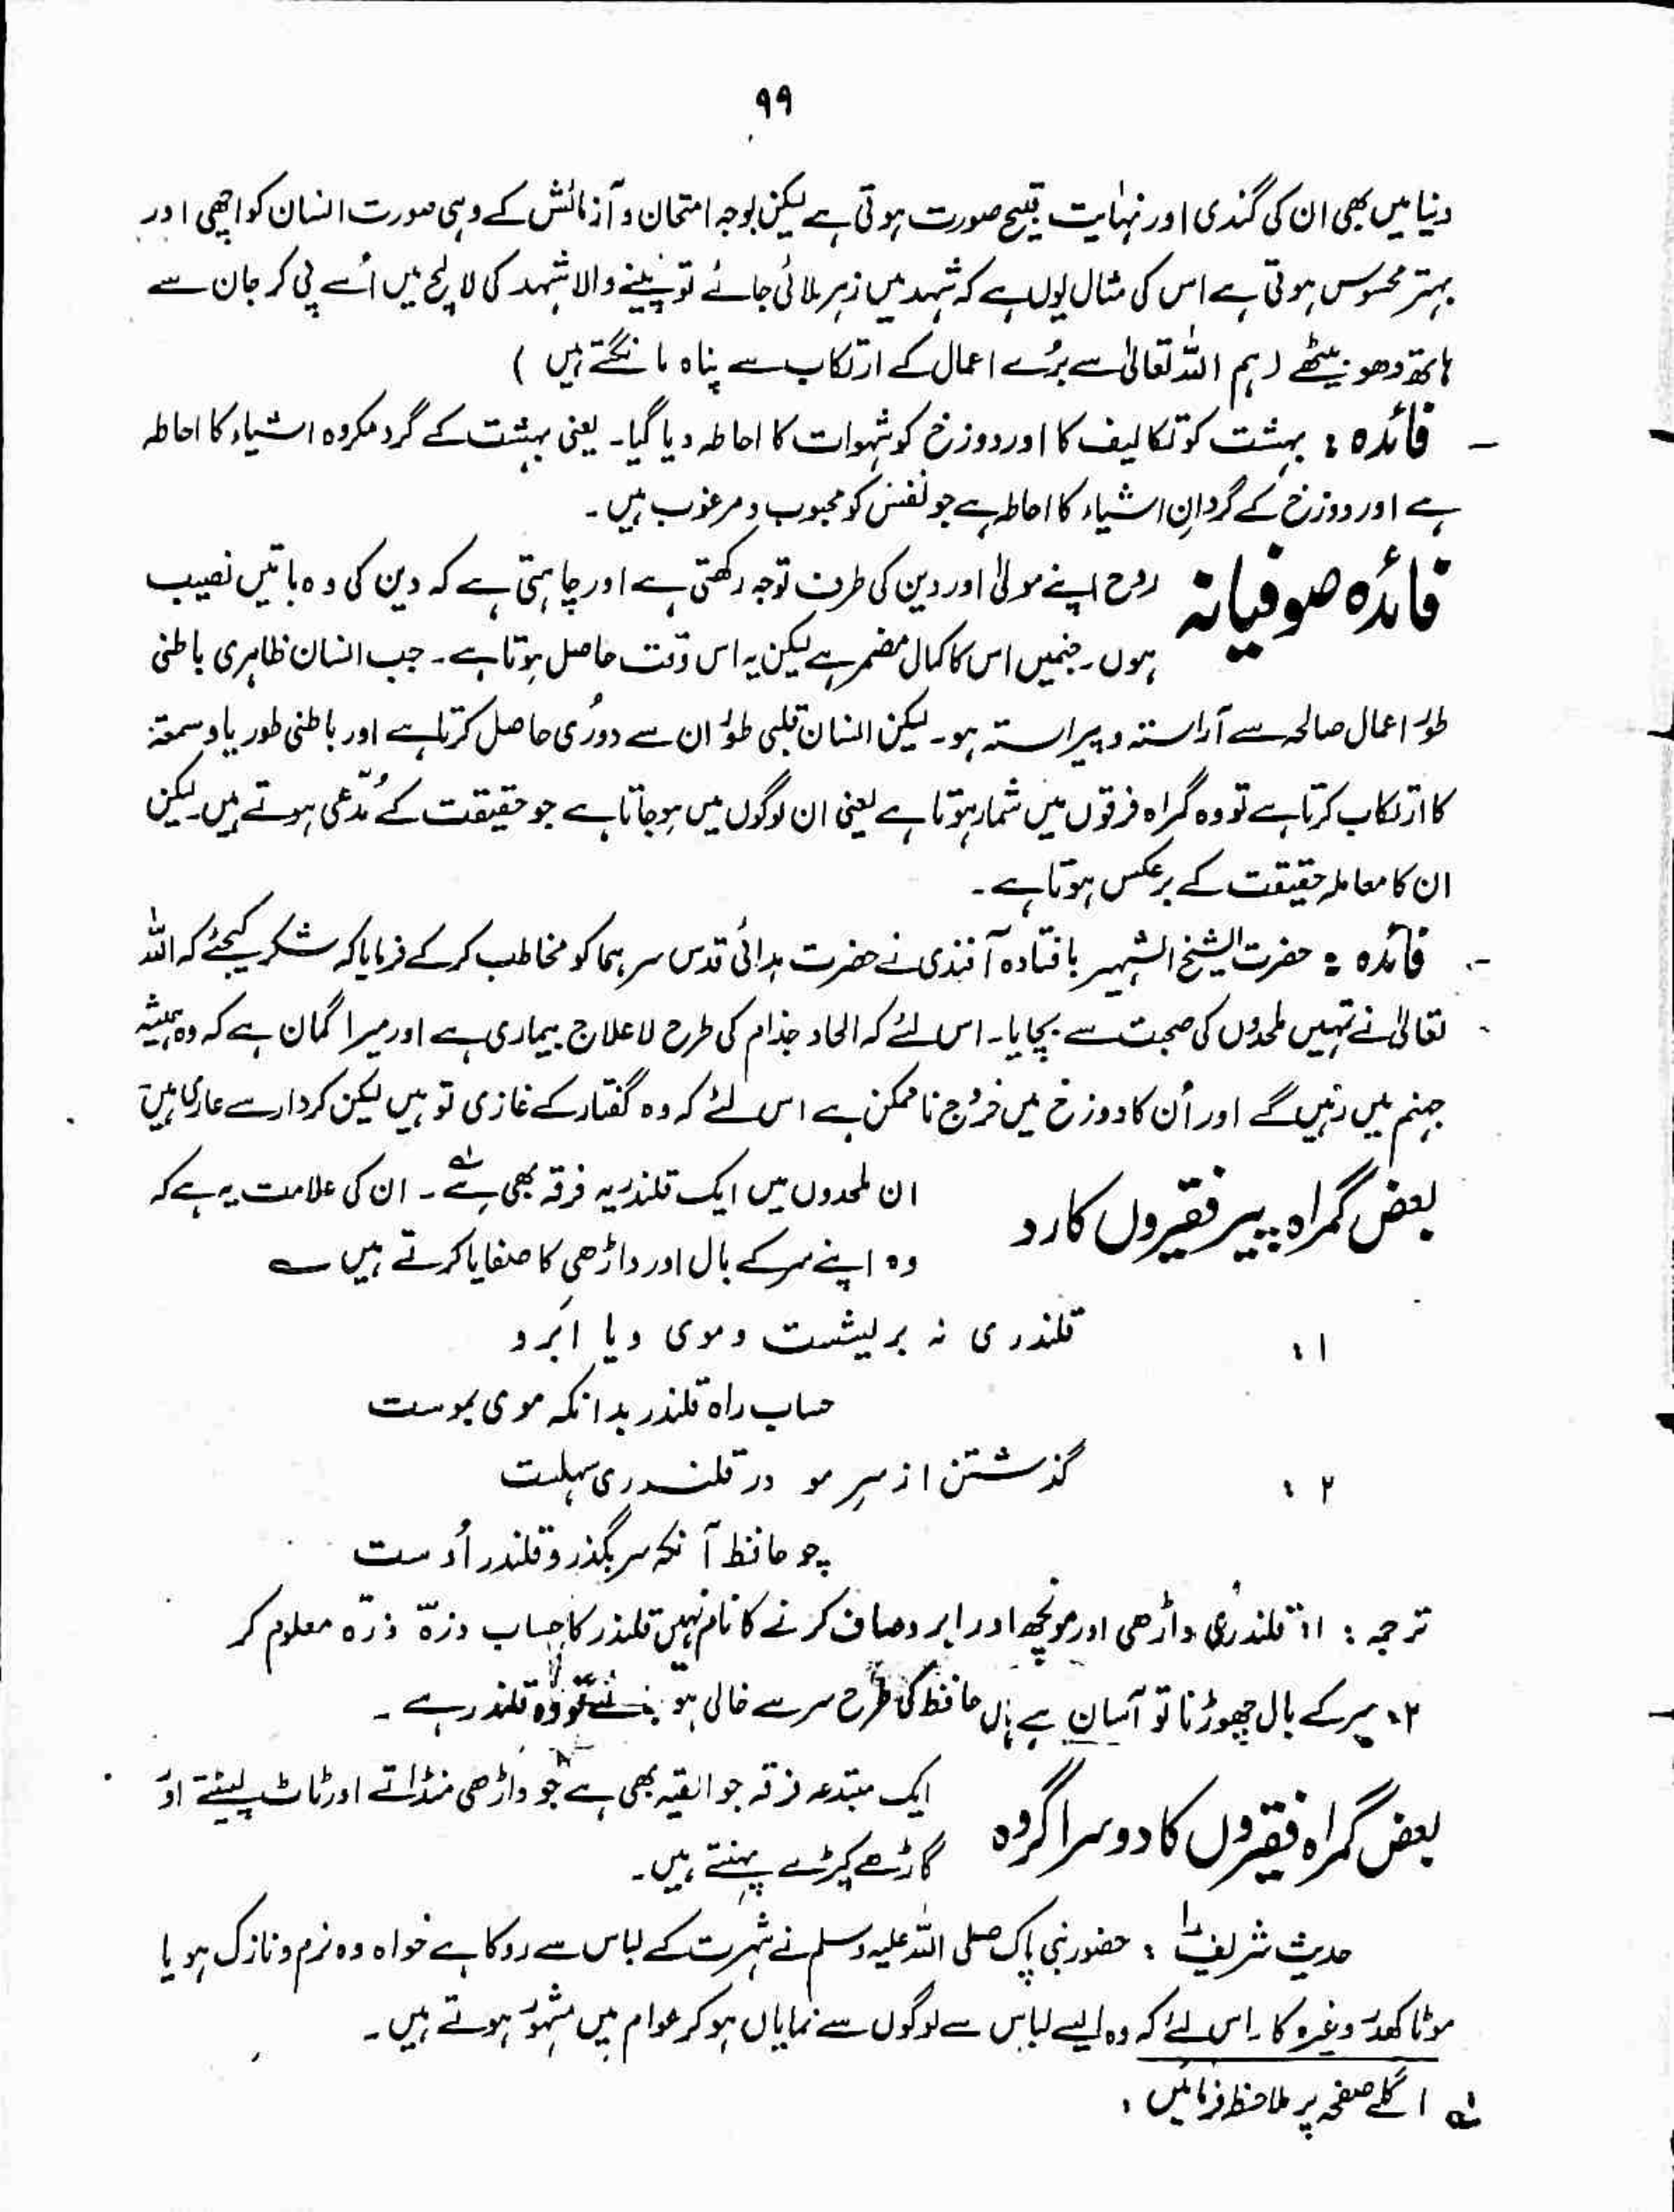 ۹۹
دنیا میں بھی ان کی گندی اور نہایت قبیح صورت ہوتی ہے لیکن بوجہ امتحان و آزمائش کے وہی صورت انسان کو اچھی اور
بہتر محسوس ہوتی ہے اس کی مثال یوں ہے کہ شہد میں زہر ملائی جائے تو پینے والا شہد کی لالچ میں اُسے پی کر جان سے
ہاتھ دھو بیٹھے (ہم اللہ تعالیٰ سے بُرے اعمال کے ارتکاب سے پناہ مانگتے ہیں )
فائدہ : بہشت کو تکالیف کا اور دوزخ کو شہوات کا احاطہ دیا گیا۔ یعنی بہشت کے گرد مکروہ اشیاء کا احاطہ
ہے اور دوزخ کے گرد اِن اشیاء کا احاطہ ہے جو نفس کو محبوب و مرغوب ہیں۔
فائدہ صوفیانہ
روح اپنے مولیٰ اور دین کی طرف توجہ رکھتی ہے اور چاہتی ہے کہ دین کی وہ باتیں نصیب
ہوں۔ جنمیں اس کا کمال مضمر ہے لیکن یہ اس وقت حاصل ہوتا ہے۔ جب انسان ظاہری باطنی
طور اعمال صالحہ سے آراستہ و پیراستہ ہو۔ لیکن انسان قلبی طور ان سے دوُری حاصل کرتا ہے اور باطنی طور ریا و سمعۃ
کا ارتکاب کرتا ہے تو وہ گمراہ فرقوں میں شمار ہوتا ہے یعنی ان لوگوں میں ہو جاتا ہے جو حقیقت کے مُدّعی ہوتے ہیں۔ لیکن
ان کا معاملہ حقیقت کے برعکس ہوتا ہے۔
فائدہ : حضرت الشیخ الشہیر بافتادہ آفندی نے حضرت ہدائی قدس سرہما کو مخاطب کرکے فرمایا کہ شکر کیجئے کہ اللہ
تعالیٰ نے تمہیں ملحدوں کی صحبت سے بچایا۔ اس لئے کہ الحاد جذام کی طرح لاعلاج بیماری ہے اور میرا گمان ہے کہ وہ ہمیشہ
جہنم میں رہیں گے اور اُن کا دوزخ میں خروج ناممکن ہے اس لئے کہ وہ گفتار کے غازی تو ہیں لیکن کردار سے عاری ہیں
بعض گمراہ پیر فقیروں کا رد
ان ملحدوں میں ایک قلندریہ فرقہ بھی ہے۔ ان کی علامت یہ ہے کہ
وہ اپنے سر کے بال اور داڑھی کا صفایا کرتے ہیں ؎
۱: قلندری نہ بریشست و موی و یا ابرو
حساب راہ قلندر بدانکہ موی بموست
۲: گذشتن از سرِ مو در قلندری سہلت
چو حافظ آنکہ سر بگذرو قلندر اُوست
ترجمہ : ۱: قلندری داڑھی اور مونچھ اور ابرو صاف کرنے کا نام نہیں قلندر کا حساب ذرّہ ذرّہ معلوم کر
۲: سر کے بال چھوڑنا تو آسان ہے ہاں حافظ کی طرح سر سے خالی ہو تو وہ قلندر ہے۔
بعض گمراہ فقیروں کا دوسرا گروہ
ایک مبتدعہ فرقہ جوالقیہ بھی ہے جو داڑھی منڈاتے اور ٹاٹ لپیٹتے اور
گاڑھے کپڑے پہنتے ہیں۔
حدیث شریف : حضور نبی پاک صلی اللہ علیہ وسلم نے شہرت کے لباس سے روکا ہے خواہ وہ نرم و نازک ہو یا
موٹا کھدر وغیرہ کا۔ اس لئے کہ وہ ایسے لباس سے لوگوں سے نمایاں ہو کر عوام میں مشہور ہوتے ہیں۔
لہ اگلے صفحہ پر ملاحظہ فرمائیں